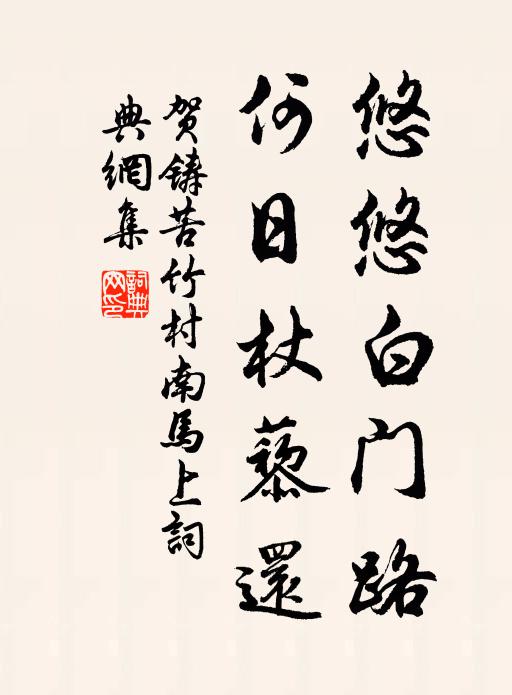 悠悠白门路
何日杖藜還
賀鑄苦竹村南馬上詞
典網集
詞典
网印